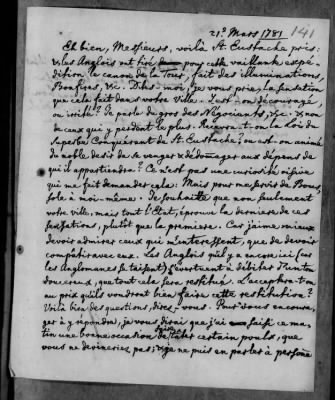 21e Mars 1781
141
Eh bien, Messieurs, voilà St. Eustache pris:
& les Anglois ont tiré pour cette vaillante expé-
dition le canon de la Tour, fait des illuminations,
Bonfires, &c. Dites-moi, je vous prie, la sensation
que cela fait dans votre Ville. Est-on découragé
ou irrité? Je parle du gros des Négociants, &c. & non
de ceux qui y perdent le plus. Recevra-t-on la Loi du
superbe Conquérant de St. Eustache; ou est-on animé
du noble desir de se venger & dédommager aux dépens de
qui il appartiendra? Ce n'est pas une curiosité oisive
qui me fait demander cela: Mais pour me servir de
moi-même. Je souhaitte que non seulement
votre ville, mais tout l'Etat, éprouve la derniere de ces
sensations, plutôt que la premiere. Car j'aime mieux
devoir admirer ceux qui m'interessent, que de devoir
compatir avec eux. Les Anglois qu'il y a encore ici (car
les Anglomanes se taisent) s'évertuent à débiter d'un ton
doucereux, que tout cela sera restitué. L'acceptera-t-on
au prix qu'ils voudront bien faire cette restitution?
Voilà bien des questions, direz-vous. Pour vous encoura-
ger à y répondre, je vous dirai que j'ai saisi ce ma-
tin une bonne occasion de faire tâter certain pouls, que
vous ne devineriez pas; & je ne puis en parler à personne